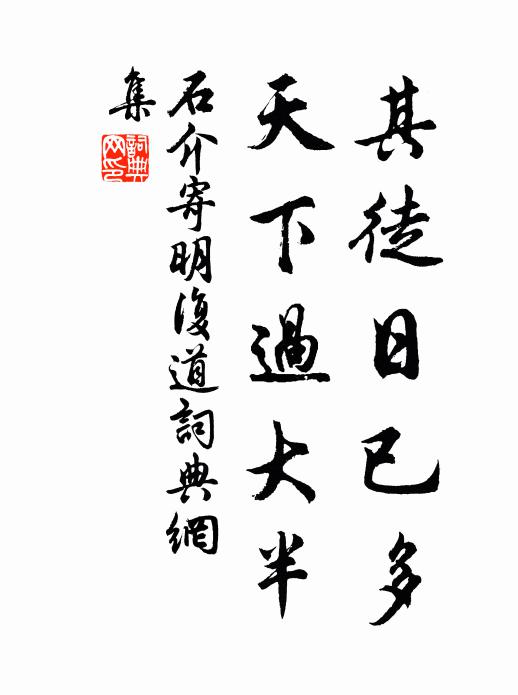 其徒日已多
天下過大半
石介寄明復道詞典網
集
詞典
网印